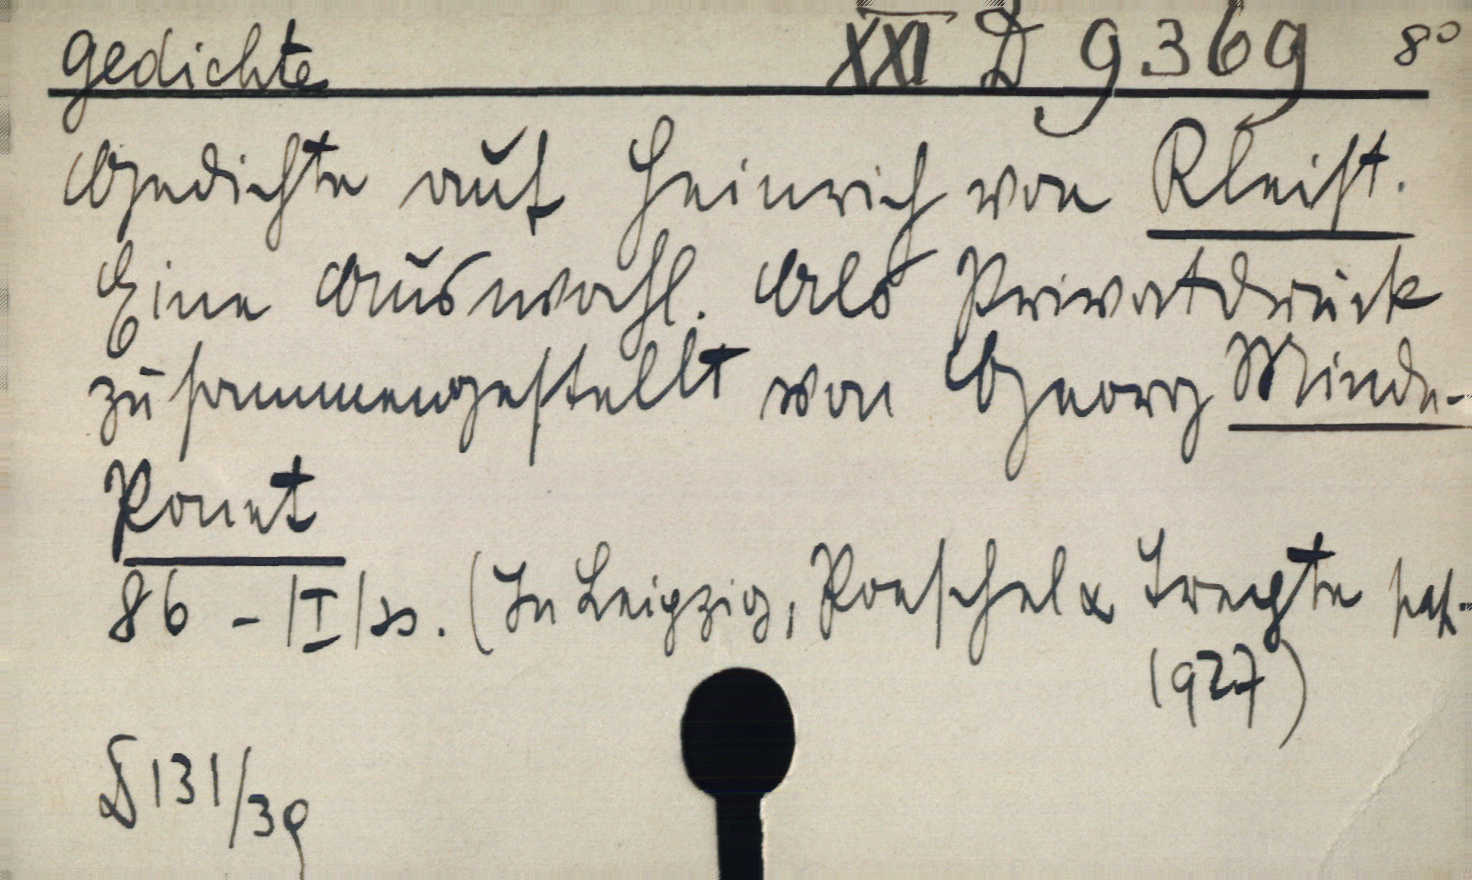 Gedichte XXI D 9369 8°
Gedichte auf Heinrich von Kleist.
Eine Auswahl. Als Privatdruck
zusammengestellt von Georg Minde-
Pouet
86 - |I| SS. (In Leipzig, Poeschel & Trepte
1927)
D 131/39